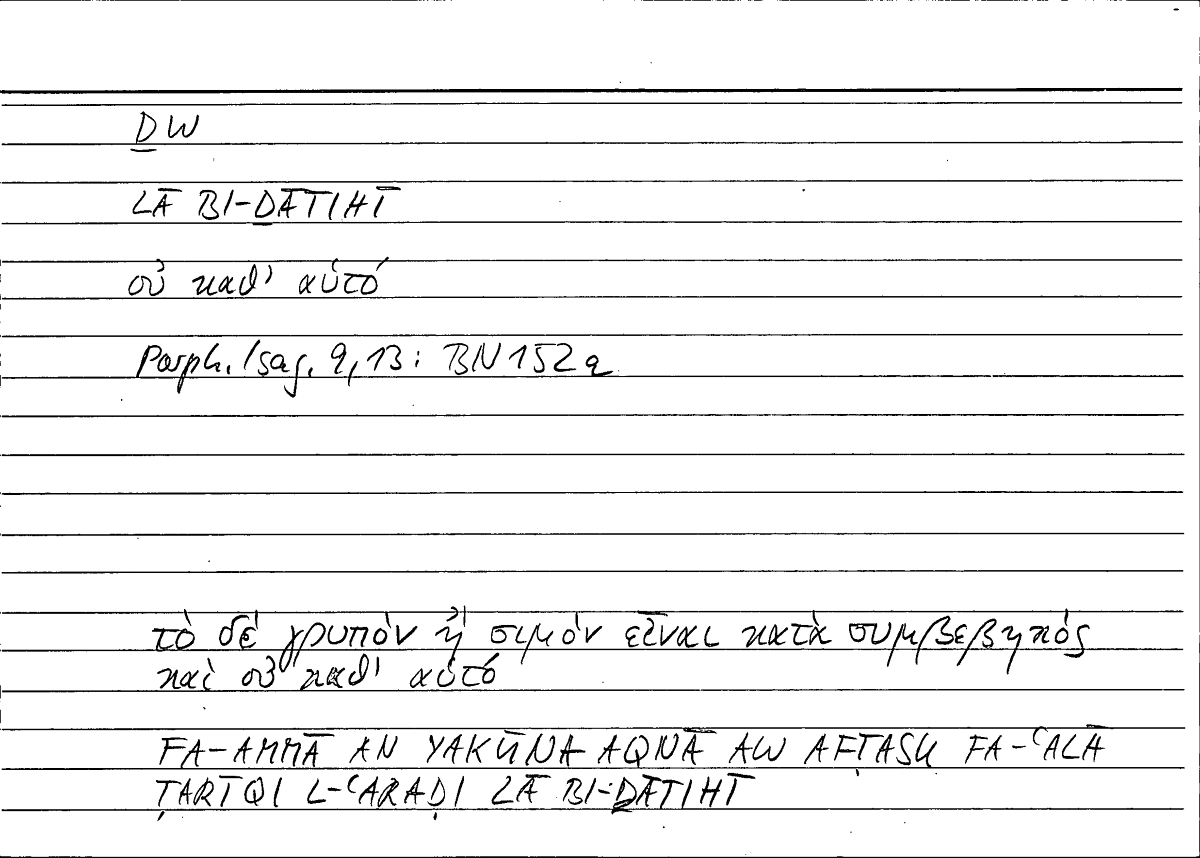 ḎW
LĀ BI-ḎĀTIHĪ
οὐ καθ' αὑτό
Porph. Isag. 9,13: BN 152 a
τὸ δὲ γρυπὸν ἢ σιμὸν εἶναι κατὰ συμβεβηκός
καὶ οὐ καθ' αὑτό
FA-AMMĀ AN YAKŪNA AQNĀ AW AFṬASU FA-ʿALĀ
ṬARĪQI L-ʿARAḌI LĀ BI-ḎĀTIHĪ